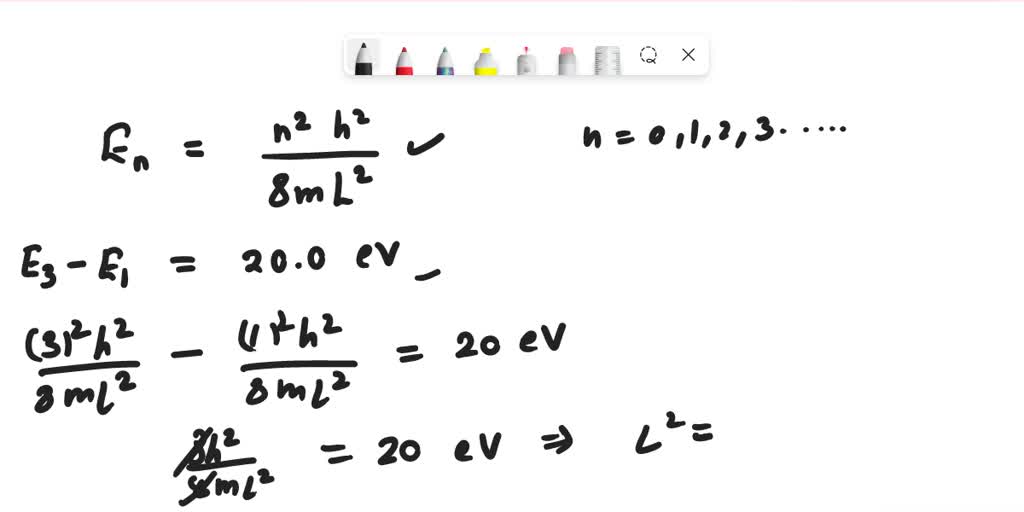 Eₙ = n² h² / 8mL² ✓ n = 0,1,2,3.....
E₃ - E₁ = 20.0 eV
(3)²h² / 8mL² - (1)²h² / 8mL² = 20 eV
8h² / 8mL² = 20 eV ⇒ L² =